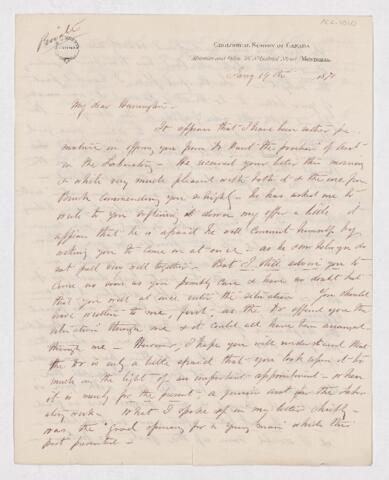 Private
GEOLOGICAL SURVEY OF CANADA
Museum and Office, 76 St Gabriel Street, MONTREAL
Jany 19th 1871
My dear Harrington -
It appears that I have been rather pre
mature in offering you from Dr Hunt the position of Asst
in the Laboratory - He received your letter this morning
& while very much pleased with both it & the one from
Brush commending you so highly - he has asked me to
write to you softening down my offer a little. It
appears that he is afraid he will commit himself by
asking you to come on at once - as he & Selwyn do
not pull very well together - But I still advise you to
come as soon as you possibly can & have no doubt but
that you will at once enter the situation. You should
have written to me, first, as the Dr offered you the
situation through me & it could all have been arranged
through me - However, I hope you will understand that
the Dr is only a little afraid that you look upon it too
much in the light of an important appointment - when
it is merely for the present - a junior asst for the labor
atory work - What I spoke of in my letter chiefly
was the "Good opening for a young man" which the
post presented -